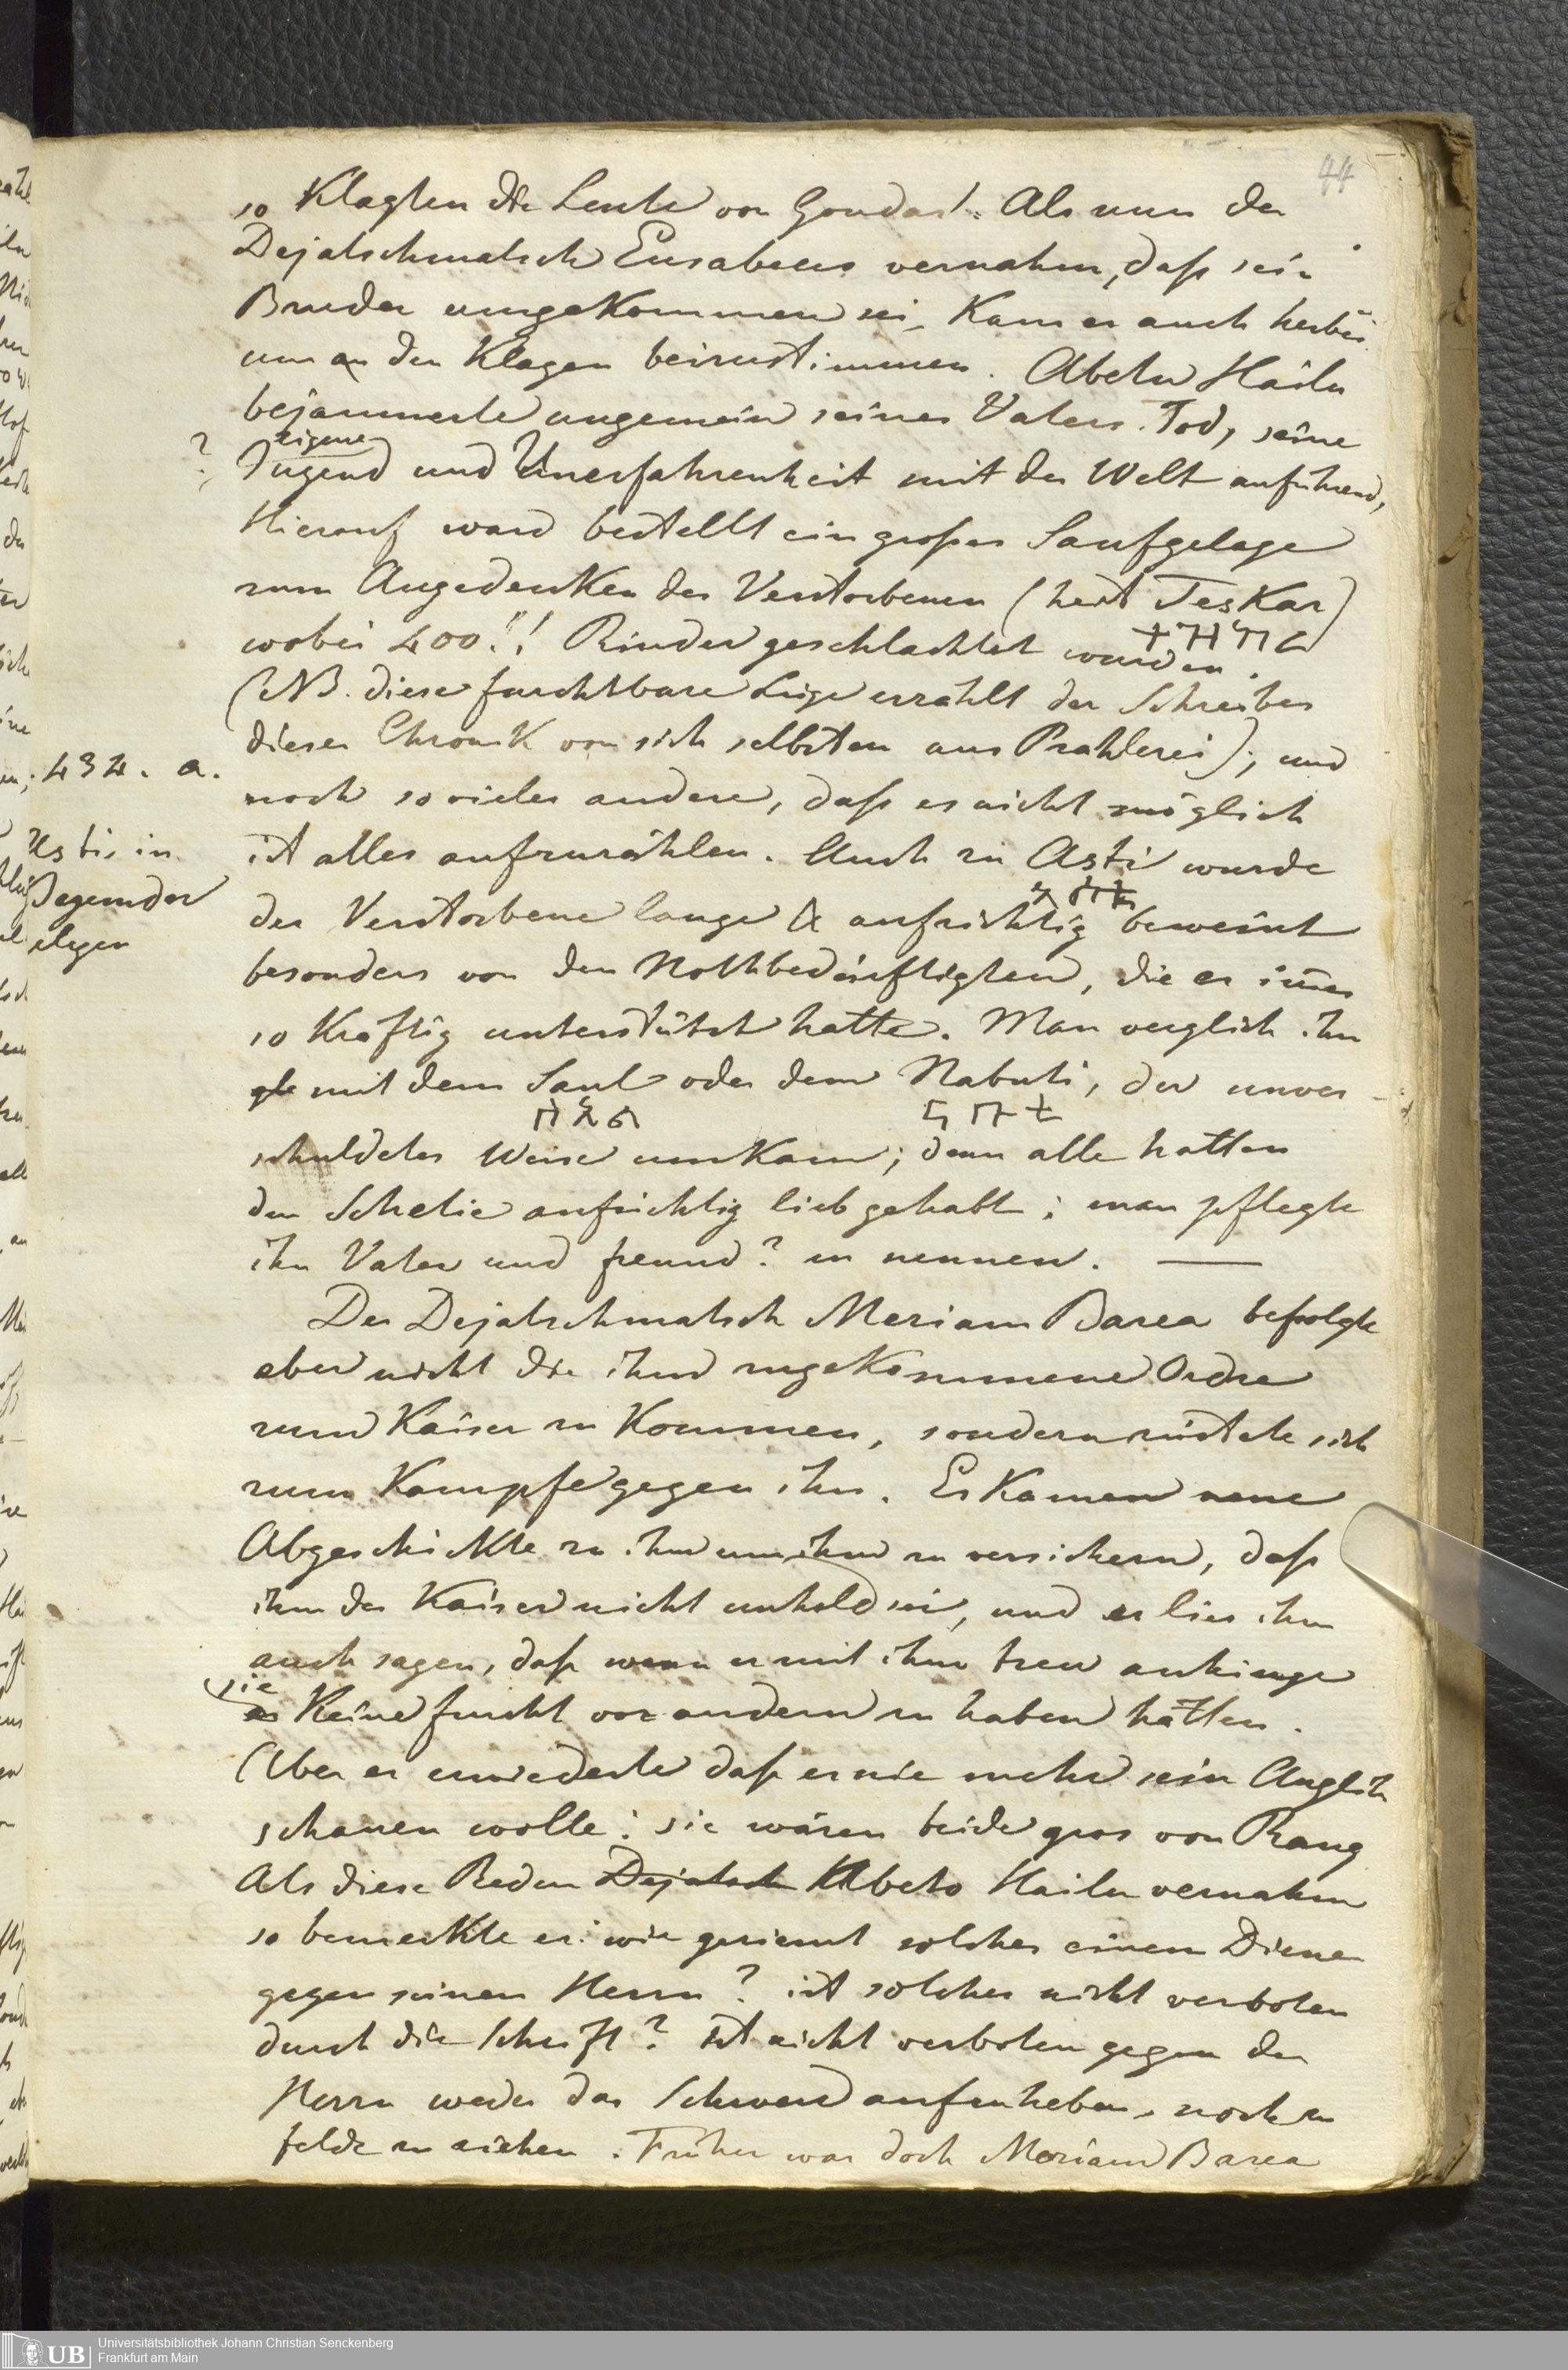 44
so Klagten die Leute von Gondar! Als nun der
Dejatschmatsch Eusabeus vernahm, daß sein
Bruder umgekommen sei, Kam er auch herbei
um an den Klagen beizustimmen. Abeto Hailu
bejammerte ungemein seines Vaters Tod, seine
eigene
? Jugend und Unerfahrenheit mit der Welt anführend,
Hierauf ward bestellt ein großes Saufgelage
zum Angedenken des Verstorbenen (heist Teskar)
ተዝካር
wobei 400!! Rinder geschlachtet wurden.
(NB. diese furchtbare Lüge erzählt der Schreiber
dieser Chronik von sich selbsten aus Prahlerei); und
434. a.
noch so vieles andere, daß es nicht möglich
ist alles aufzuzählen. Auch zu Asti wurde
Es ti, in
Begemder
elegen
der Verstorbene lange & aufrichtig beweint
besonders von den Nothbedürftigten, die er imer
so Kräftig unterstützt hatte. Man verglich ihn
gle mit dem Saul oder dem Nabuti, der unver-
ሳኦል ናቡቴ
schuldeter Weise umkam; denn alle hatten
den Schelie aufrichtig lieb gehabt; man pflegte
ihn Vater und freund? zu nennen. —
Der Dejatschmatsch Meriam Barea befolgte
aber nicht die ihm zugekommene Ordre
zum Kaiser zu Kommen, sondern rüstete sich
zum Kampfe gegen ihn. Es Kamen neue
Abgeschickte zu ihm um ihm zu versichern, daß
ihm der Kaiser nicht unhold sei, und er lies ihm
auch sagen, daß wenn er mit ihm treu anhinge
sie
er Keine furcht vor andern zu haben hätten.
Aber er erwiederte daß er nie mehr sein Anglitz
schauen wolle: sie wären beide gros von Rang
Als diese Reden Dejatsch Abeto Hailu vernahm
so bemerkte er: wie geziemt solches einem Diener
gegen seinen Herrn? ist solches nicht verboten
durch die Schrift? ist nicht verboten gegen den
Herrn weder das Schwerd aufzuheben, noch zu
felde zu ziehen. Früher war doch Meriam Barea
UB Universitätsbibliothek Johann Christian Senckenberg
Frankfurt am Main